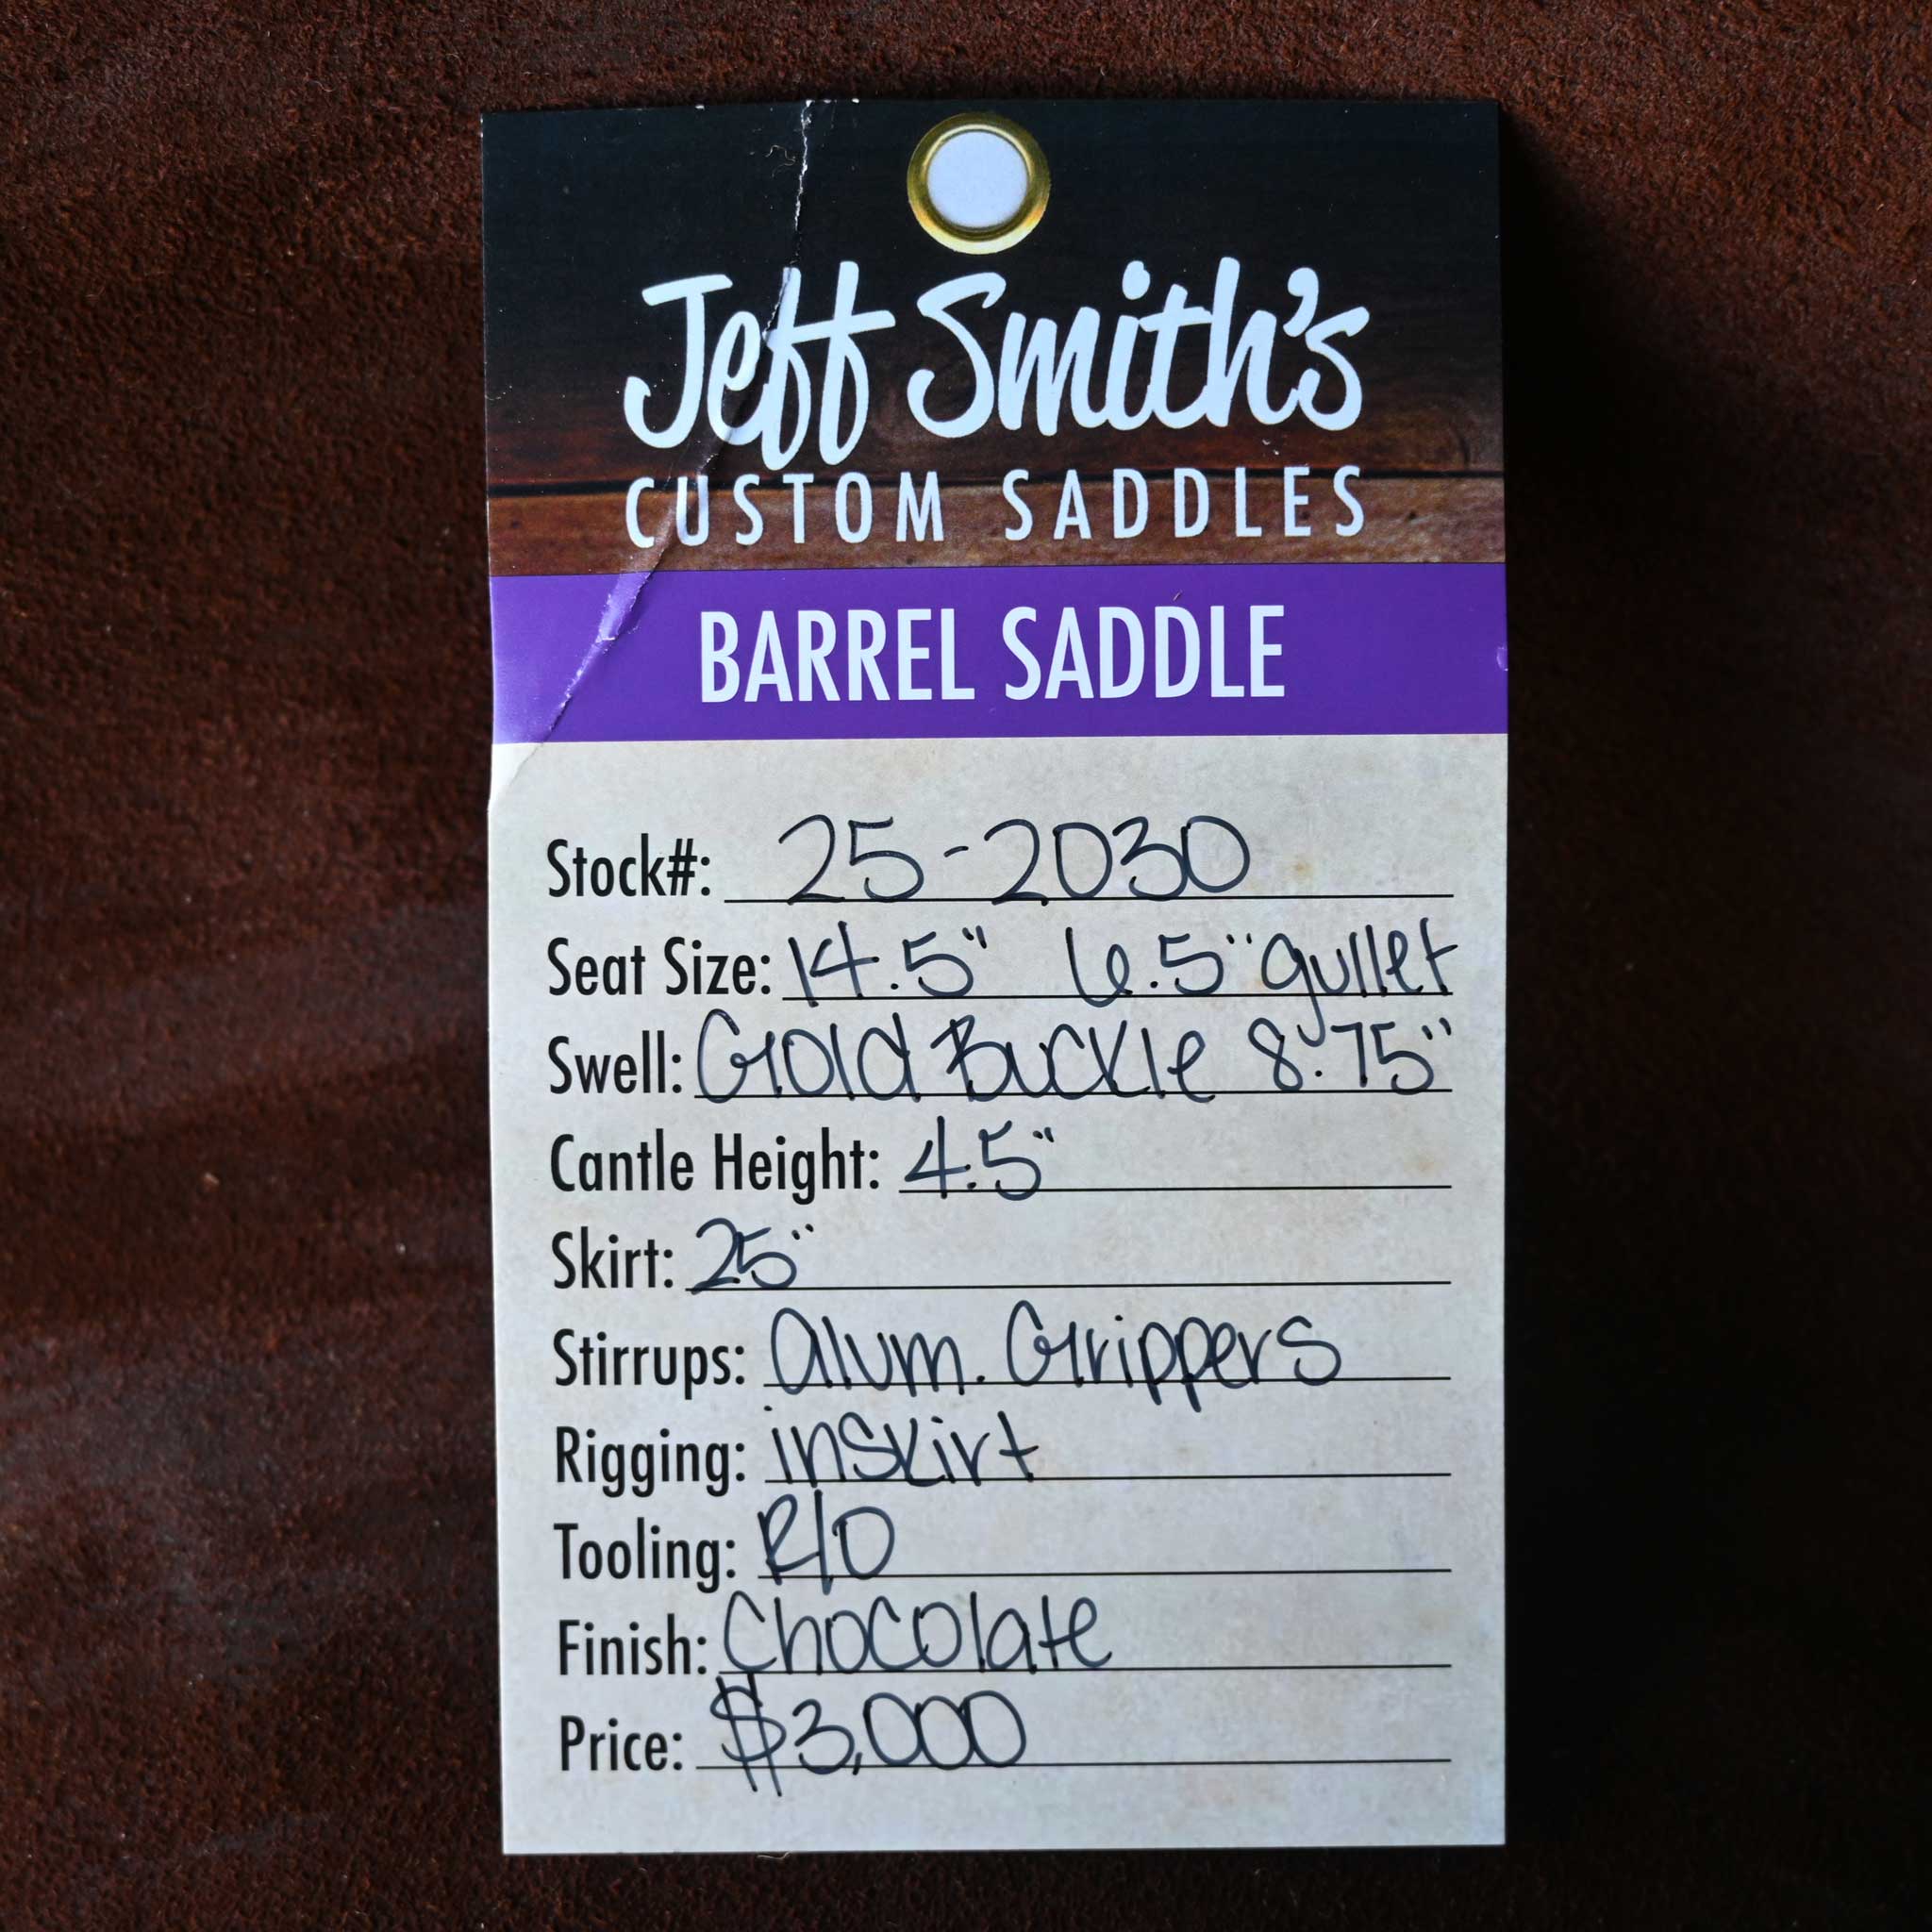 Jeff Smith's
CUSTOM SADDLES
BARREL SADDLE
Stock#: 25-2030
Seat Size: 14.5" 6.5" gullet
Swell: Gold Buckle 8.75"
Cantle Height: 4.5"
Skirt: 25"
Stirrups: Alum. Grippers
Rigging: inskirt
Tooling: R/O
Finish: Chocolate
Price: $3,000